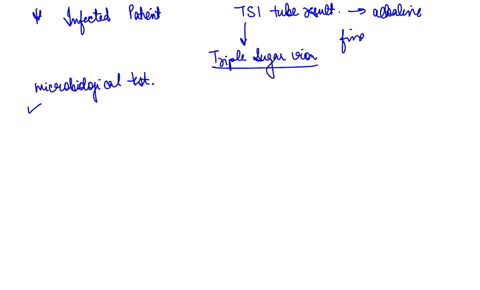 Infected Patient
TSI tube result. → alkaline
fine
Triple Sugar iron
microbiological test.